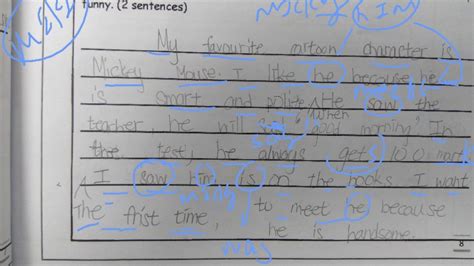 funny. (2 sentences)
Mickey him
My favourite cartoon character is
Mickey Mouse. I like he because he
is smart and polite. He saw the
When
teacher, he will say "good morning". In
the test, he always gets 100 mark
I saw him is on the books I want
The frist time, to meet he because
was he is handsome.
8